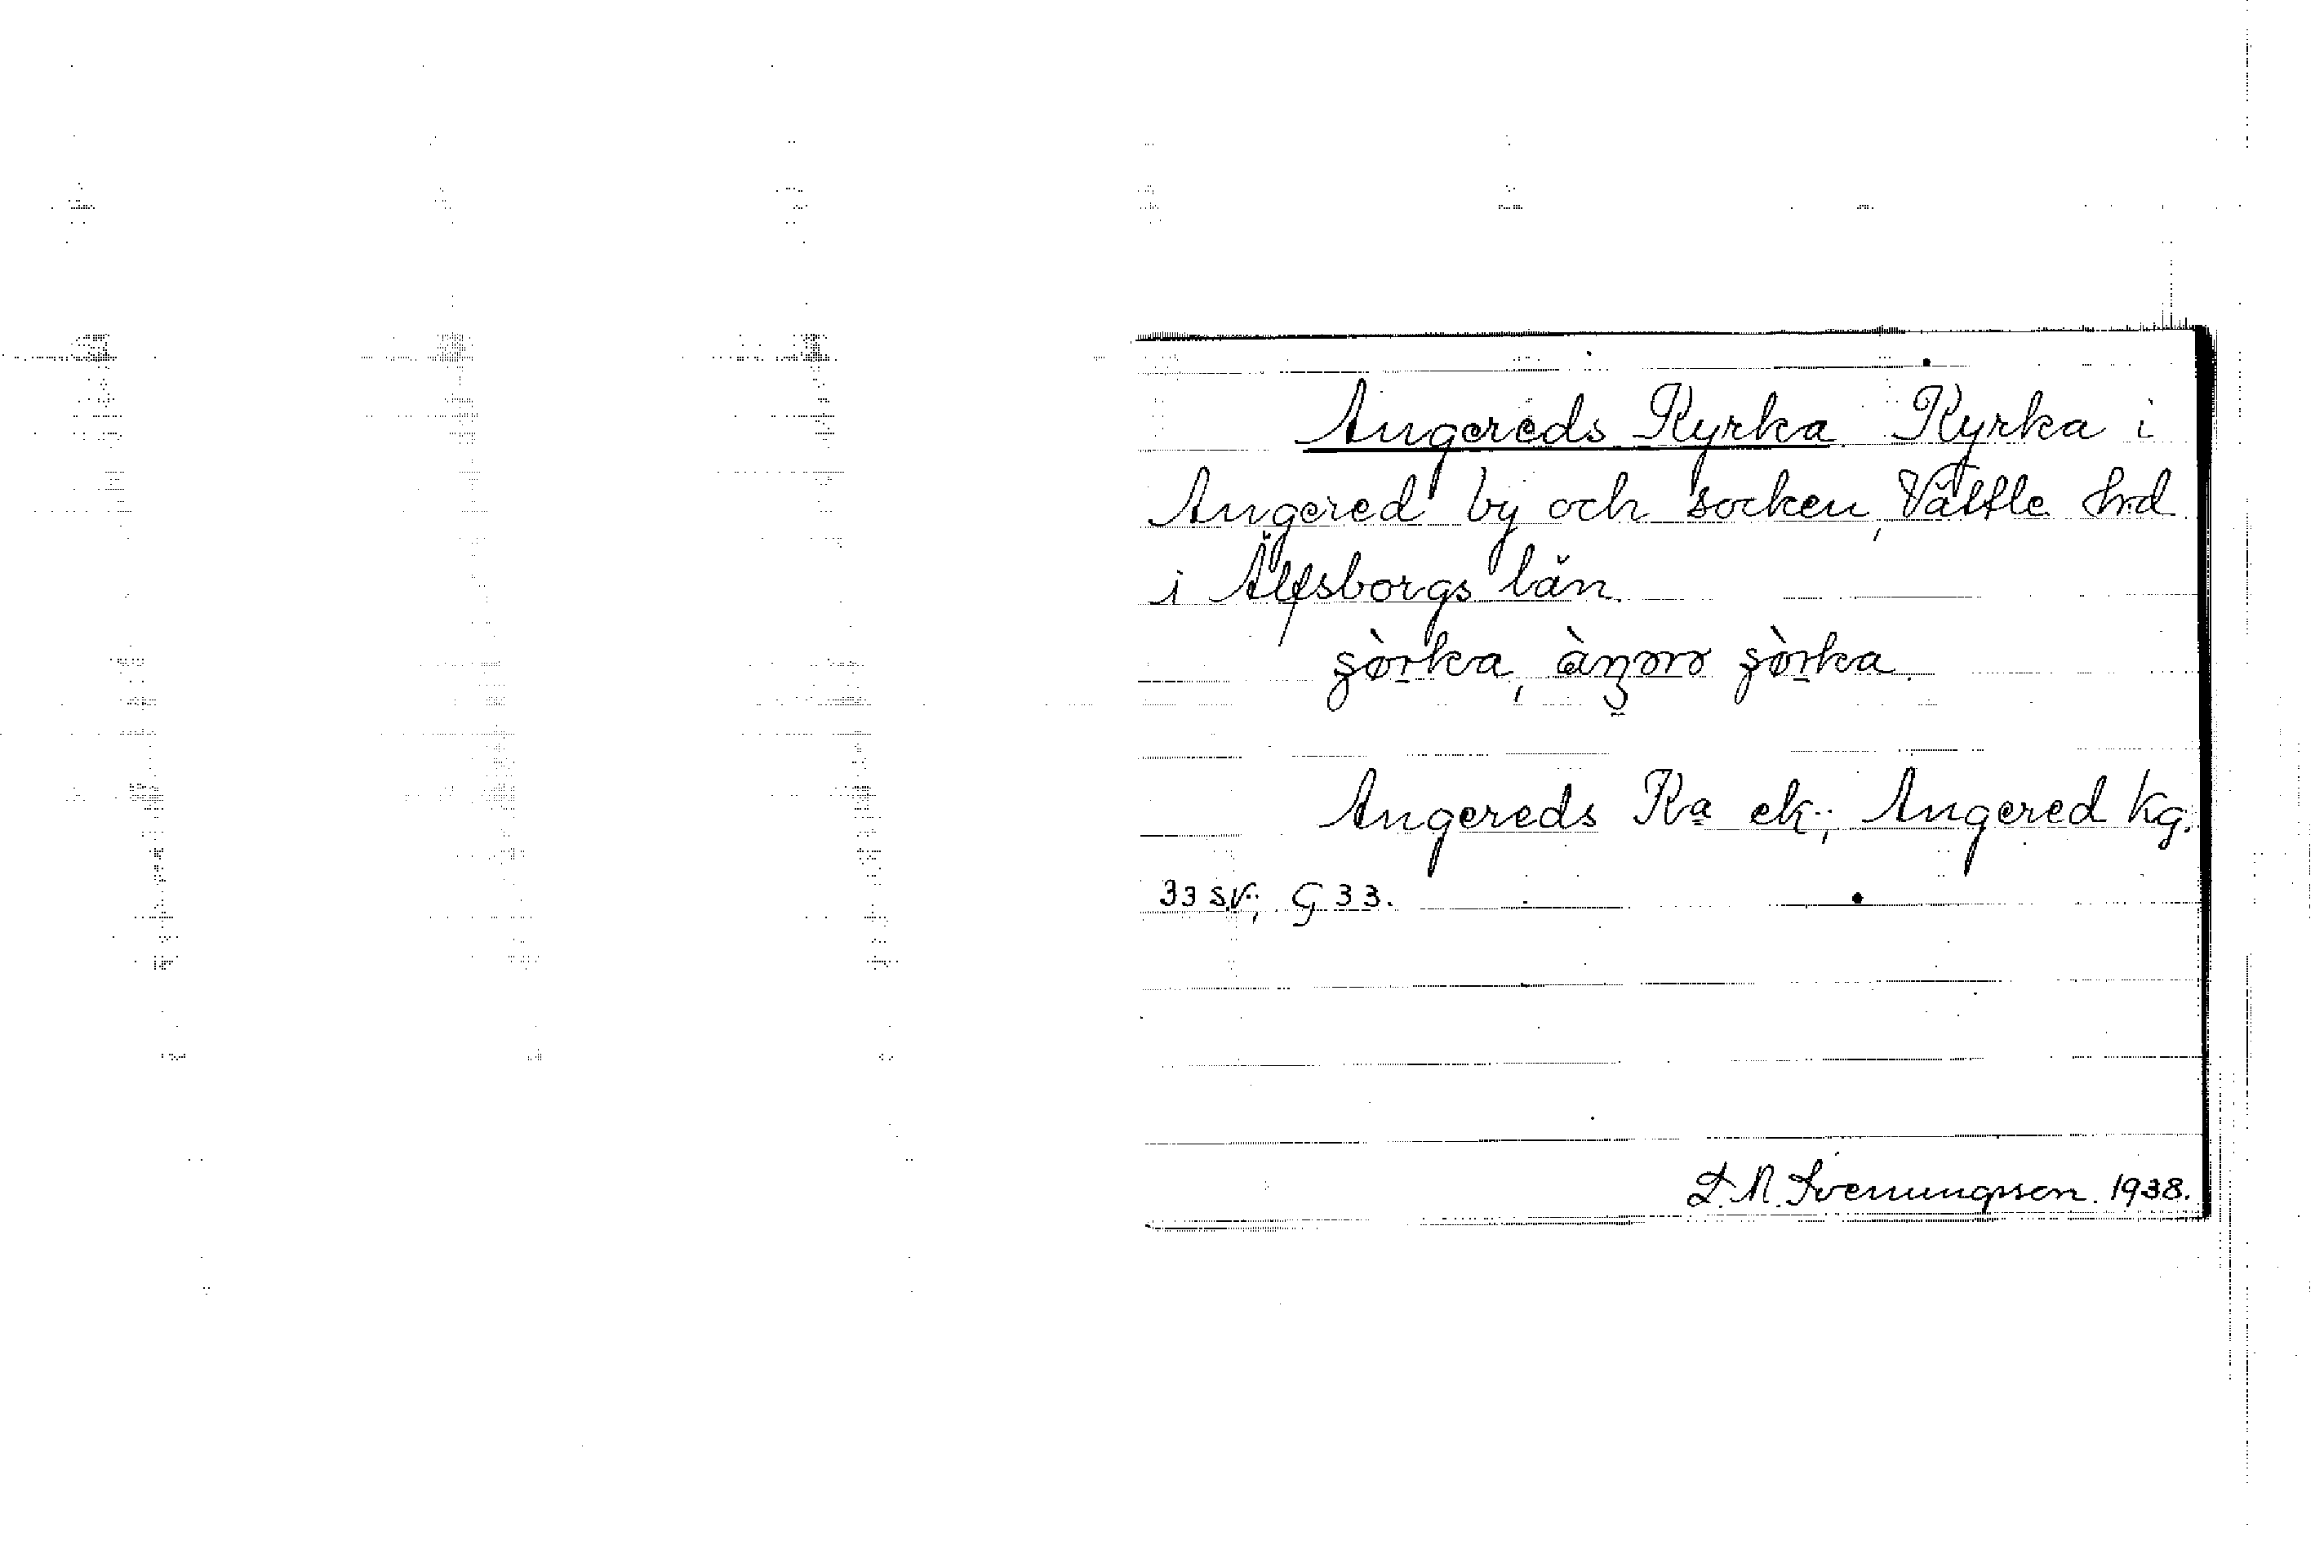 Angereds Kyrka. Kyrka i
Angered by och socken, Vättle hrd
i Älfsborgs län.
Angereds Ka ek.; Angered kg.
33 S.V.; G 33.
S. N. Svenungsson. 1938.